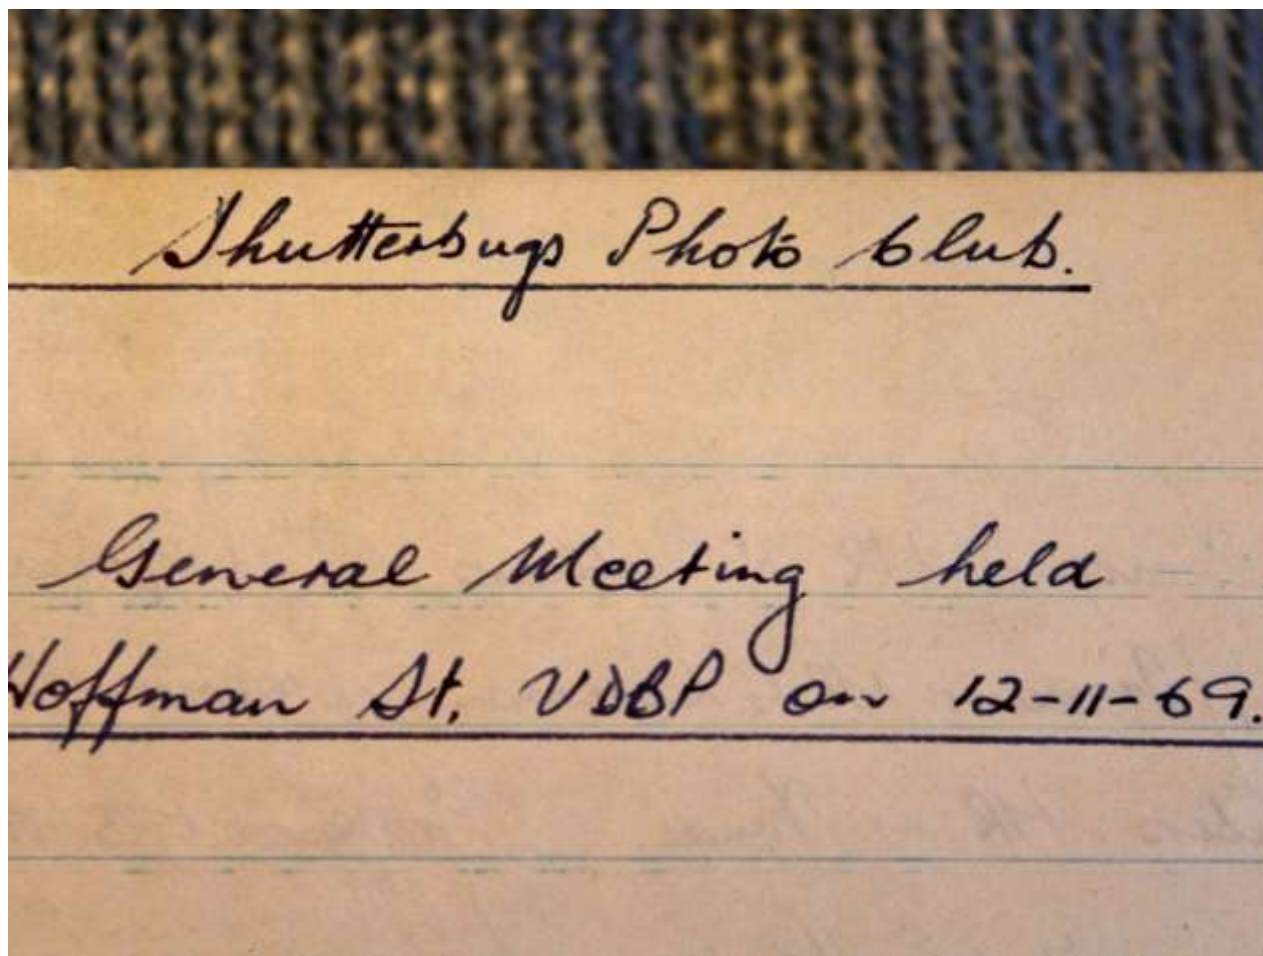 Shutterbugs Photo Club.
General Meeting held
Hoffman St. VDBP on 12-11-69.